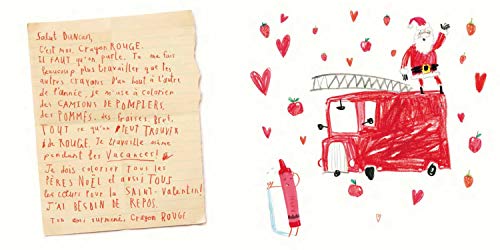 Salut Duncan,
C'est moi, Crayon ROUGE.
IL FAUT qu'on parle. Tu me fais
beaucoup plus travailler que tes
autres crayons. D'un bout à l'autre
de l'année, je m'use à colorier
des CAMIONS DE POMPIERS,
des POMMES, des fraises. Bref,
TOUT ce qu'on PEUT TROUVER
de ROUGE. Je travaille même
pendant les Vacances!
Je dois colorier TOUS les
PÈRES NOËL et aussi TOUS
les cœurs pour la SAINT-Valentin!
J'AI BESOIN DE REPOS.
Ton ami surmené, Crayon ROUGE